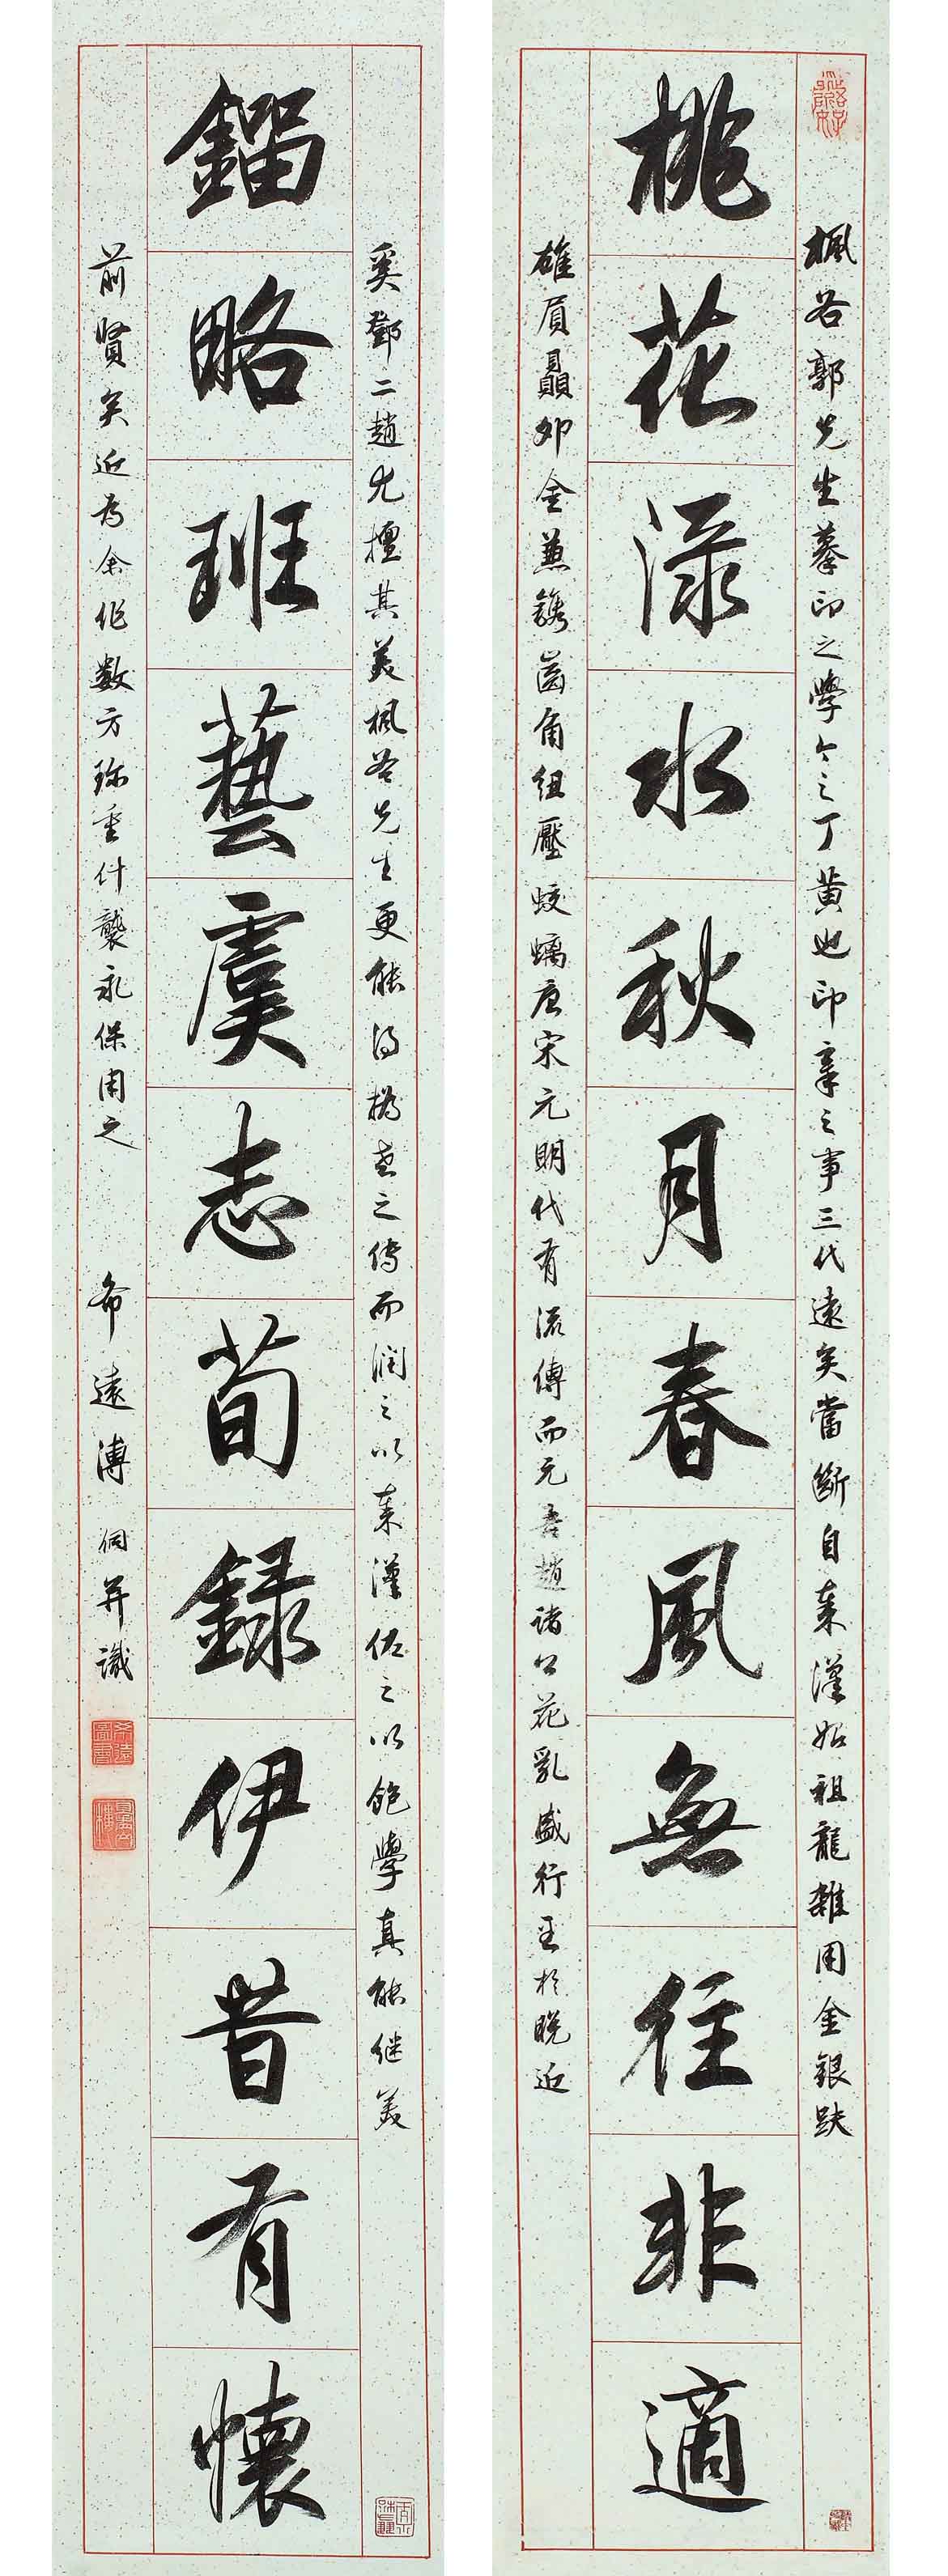 楓谷郭先生摹印之學今之丁黃也印章之事三代遠矣當斷自秦漢始祖龍雜用金銀
桃花渌水秋月春風無往非適
金兼鐫齒角紐壓蛟螭唐宋元明代有流傳而元吾趙諸公花乳盛行至於晚近
奚鄧二趙尤擅其美楓谷先生更能得之傳而潤之以秦漢佐之以飽學真能继美
鎦略班藝虞志荀録伊昔有懷
前賢矣近為余作數方珎重什襲永保用之
希遠溥侗并識